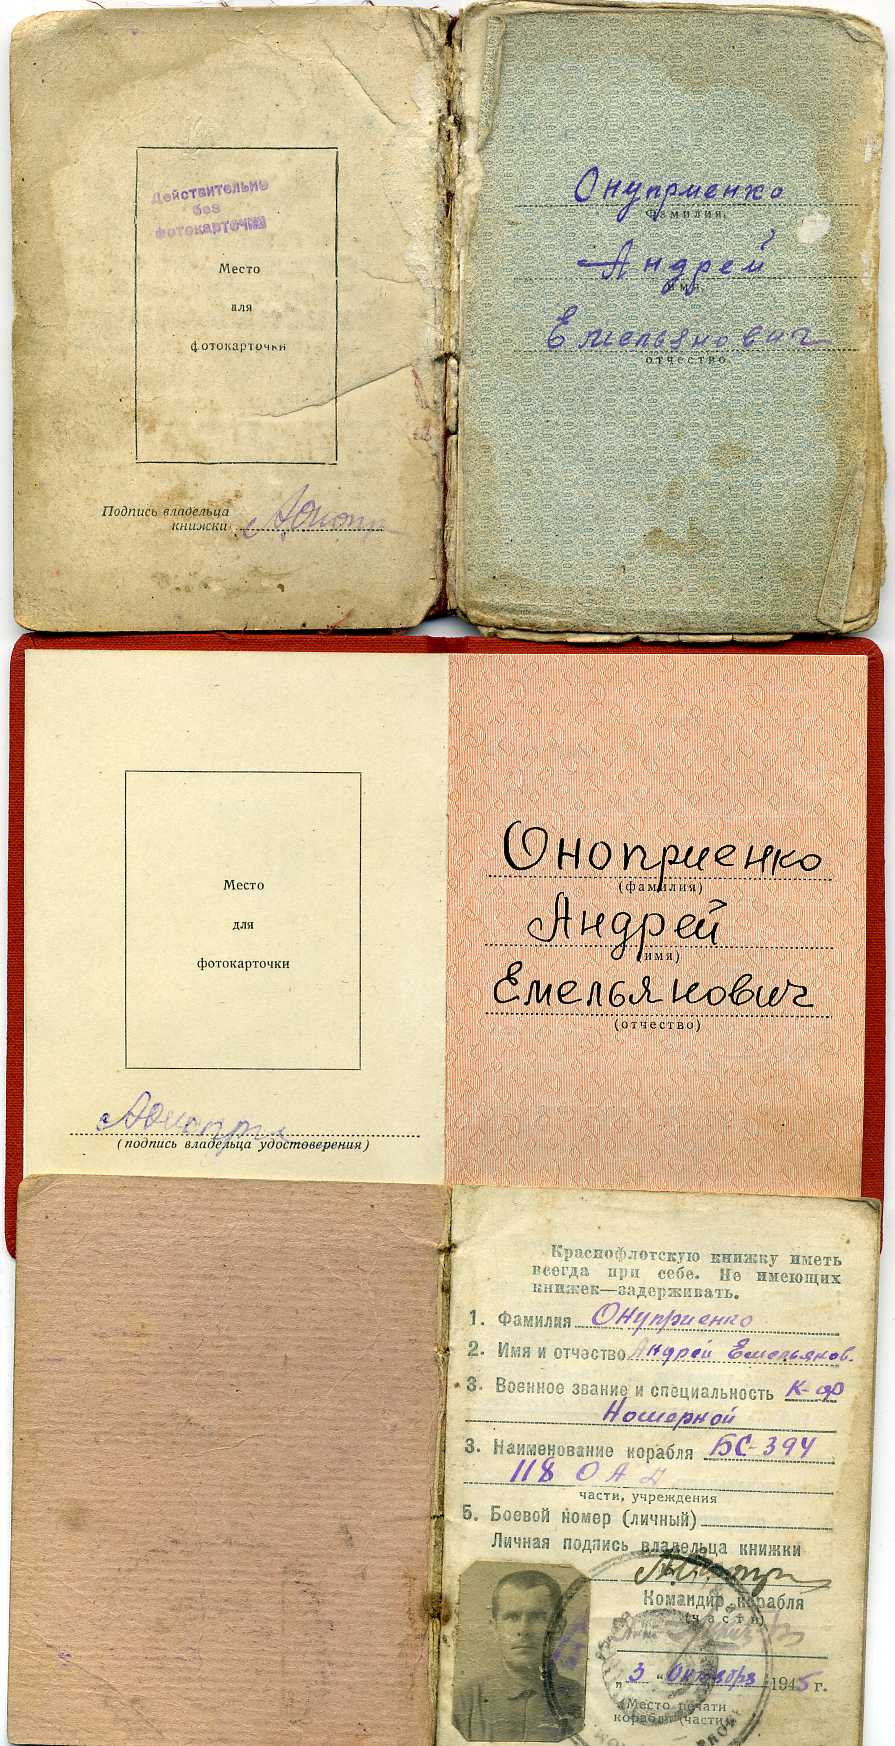 Действительно
без
фотокарточки
Место
для
фотокарточки
Подпись владельца
книжки
Онуприенко
фамилия
Андрей
имя
Емельянович
отчество
Место
для
фотокарточки
(подпись владельца удостоверения)
Оноприенко
(фамилия)
Андрей
(имя)
Емельянович
(отчество)
Краснофлотскую книжку иметь
всегда при себе. Не имеющих
книжек—задерживать.
1. Фамилия Онуприенко
2. Имя и отчество Андрей Емельянов.
3. Военное звание и специальность К-ф
Номерной
3. Наименование корабля БС-394
118 ОАД
части, учреждения
5. Боевой номер (личный)
Личная подпись владельца книжки
Командир корабля
(части)
„3" Октября 1945 г.
(Место печати
корабля (части)